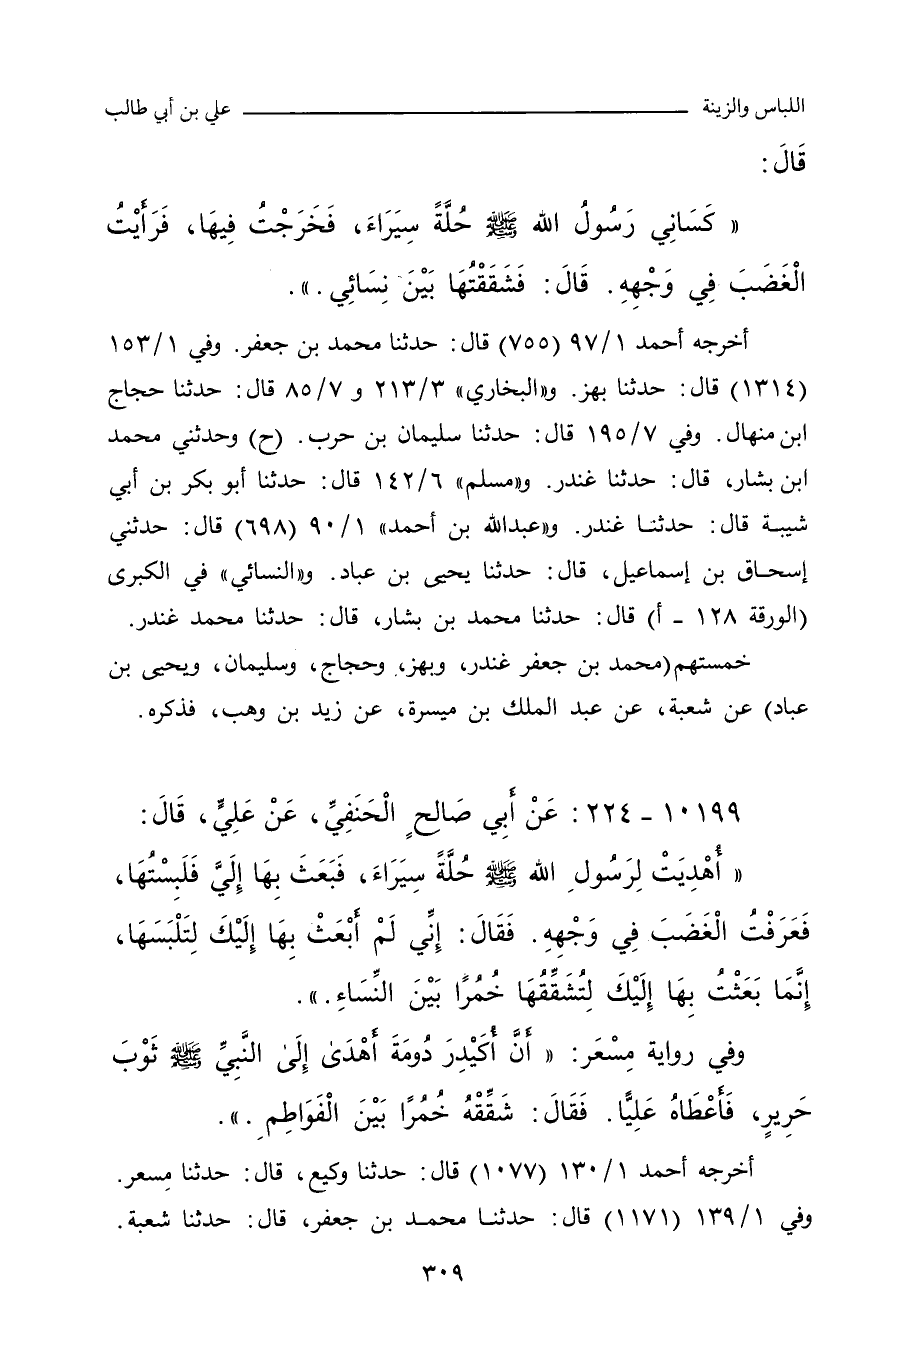 اللباس والزينة ــــــــــــــــــــ علي بن أبي طالب
قَالَ :
« كَسَانِي رَسُولُ الله ﷺ حُلَّةً سِيَرَاءَ، فَخَرَجْتُ فِيهَا، فَرَأَيْتُ
الْغَضَبَ فِي وَجْهِهِ. قَالَ : فَشَقَقْتُهَا بَيْنَ نِسَائِي . ».
أخرجه أحمد ٩٧/١ (٧٥٥) قال : حدثنا محمد بن جعفر. وفي ١٥٣/١
(١٣١٤) قال : حدثنا بهز. و«البخاري» ٢١٣/٣ و ٨٥/٧ قال : حدثنا حجاج
ابن منهال. وفي ١٩٥/٧ قال : حدثنا سليمان بن حرب. (ح) وحدثني محمد
ابن بشار، قال : حدثنا غندر. و«مسلم» ١٤٢/٦ قال : حدثنا أبو بكر بن أبي
شيبة قال : حدثنا غندر. و«عبدالله بن أحمد» ٩٠/١ (٦٩٨) قال : حدثني
إسحاق بن إسماعيل، قال : حدثنا يحيى بن عباد. و«النسائي» في الكبرى
(الورقة ١٢٨ - أ) قال : حدثنا محمد بن بشار، قال : حدثنا محمد غندر.
خمستهم(محمد بن جعفر غندر، وبهز، وحجاج، وسليمان، ويحيى بن
عباد) عن شعبة، عن عبد الملك بن ميسرة، عن زيد بن وهب، فذكره.
١٠١٩٩ - ٢٢٤ : عَنْ أَبِي صَالِحٍ الْحَنَفِيِّ، عَنْ عَلِيٍّ، قَالَ :
« أُهْدِيَتْ لِرَسُولِ الله ﷺ حُلَّةً سِيَرَاءَ، فَبَعَثَ بِهَا إِلَيَّ فَلَبِسْتُهَا،
فَعَرَفْتُ الْغَضَبَ فِي وَجْهِهِ. فَقَالَ : إِنِّي لَمْ أَبْعَثْ بِهَا إِلَيْكَ لِتَلْبَسَهَا،
إِنَّمَا بَعَثْتُ بِهَا إِلَيْكَ لِتُشَقِّقُهَا خُمُرًا بَيْنَ النِّسَاءِ . ».
وفي رواية مِسْعَر : « أَنَّ أُكَيْدِرَ دُومَةَ أَهْدَىٰ إِلَىٰ النَّبِيِّ ﷺ ثَوْبَ
حَرِيرٍ، فَأَعْطَاهُ عَلِيًّا. فَقَالَ : شَقِّقْهُ خُمُرًا بَيْنَ الْفَوَاطِمِ . ».
أخرجه أحمد ١٣٠/١ (١٠٧٧) قال : حدثنا وكيع، قال : حدثنا مِسعر.
وفي ١٣٩/١ (١١٧١) قال : حدثنا محمد بن جعفر، قال : حدثنا شعبة.
٣٠٩